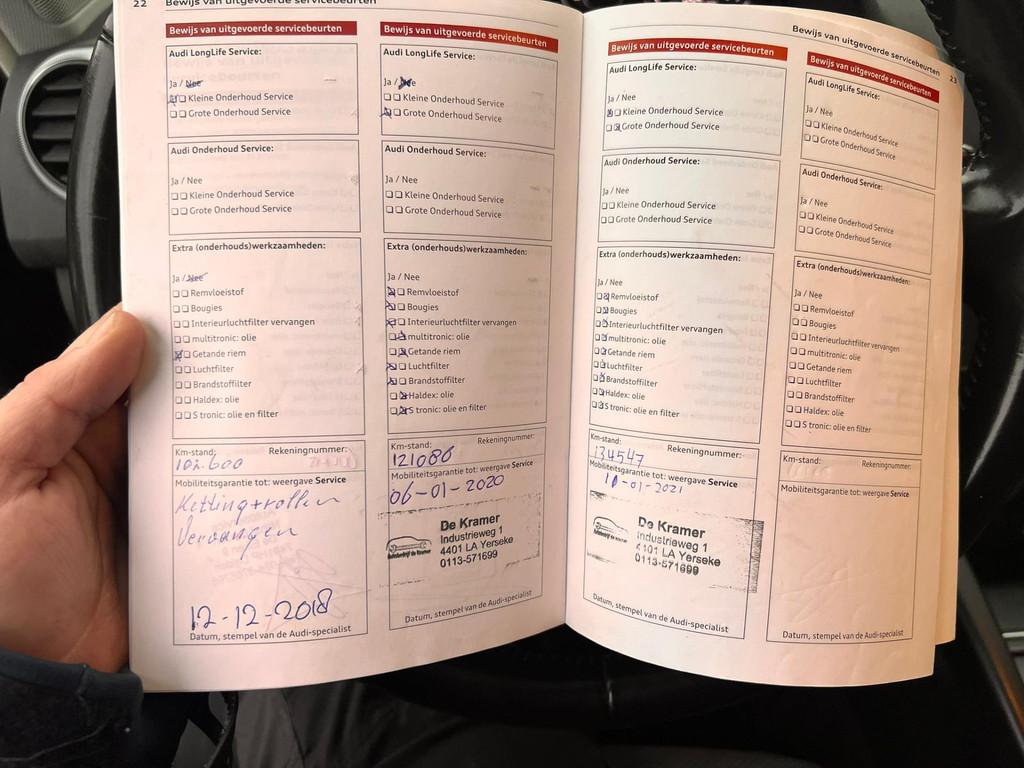 22 Bewijs van uitgevoerde servicebeurten
Bewijs van uitgevoerde servicebeurten
Audi LongLife Service:
Ja / Nee
Kleine Onderhoud Service
Grote Onderhoud Service
Audi Onderhoud Service:
Ja / Nee
Kleine Onderhoud Service
Grote Onderhoud Service
Extra (onderhouds)werkzaamheden:
Ja / Nee
Remvloeistof
Bougies
Interieurluchtfilter vervangen
multitronic: olie
Getande riem
Luchtfilter
Brandstoffilter
Haldex: olie
S tronic: olie en filter
Km-stand: Rekeningnummer:
102.600
Mobiliteitsgarantie tot: weergave Service
Ketting+rollen
Vervangen
12-12-2018
Datum, stempel van de Audi-specialist
Bewijs van uitgevoerde servicebeurten
Audi LongLife Service:
Ja / Nee
Kleine Onderhoud Service
Grote Onderhoud Service
Audi Onderhoud Service:
Ja / Nee
Kleine Onderhoud Service
Grote Onderhoud Service
Extra (onderhouds)werkzaamheden:
Ja / Nee
Remvloeistof
Bougies
Interieurluchtfilter vervangen
multitronic: olie
Getande riem
Luchtfilter
Brandstoffilter
Haldex: olie
S tronic: olie en filter
Km-stand: Rekeningnummer:
121086
Mobiliteitsgarantie tot: weergave Service
06-01-2020
De Kramer
Industrieweg 1
4401 LA Yerseke
0113-571699
Datum, stempel van de Audi-specialist
Bewijs van uitgevoerde servicebeurten 23
Bewijs van uitgevoerde servicebeurten
Audi LongLife Service:
Ja / Nee
Kleine Onderhoud Service
Grote Onderhoud Service
Audi Onderhoud Service:
Ja / Nee
Kleine Onderhoud Service
Grote Onderhoud Service
Extra (onderhouds)werkzaamheden:
Ja / Nee
Remvloeistof
Bougies
Interieurluchtfilter vervangen
multitronic: olie
Getande riem
Luchtfilter
Brandstoffilter
Haldex: olie
S tronic: olie en filter
Km-stand: Rekeningnummer:
134547
Mobiliteitsgarantie tot: weergave Service
De Kramer
Industrieweg 1
4401 LA Yerseke
0113-571699
Datum, stempel van de Audi-specialist
Bewijs van uitgevoerde servicebeurten
Audi LongLife Service:
Ja / Nee
Kleine Onderhoud Service
Grote Onderhoud Service
Audi Onderhoud Service:
Ja / Nee
Kleine Onderhoud Service
Grote Onderhoud Service
Extra (onderhouds)werkzaamheden:
Ja / Nee
Remvloeistof
Bougies
Interieurluchtfilter vervangen
multitronic: olie
Getande riem
Luchtfilter
Brandstoffilter
Haldex: olie
S tronic: olie en filter
Km-stand: Rekeningnummer:
Mobiliteitsgarantie tot: weergave Service
Datum, stempel van de Audi-specialist